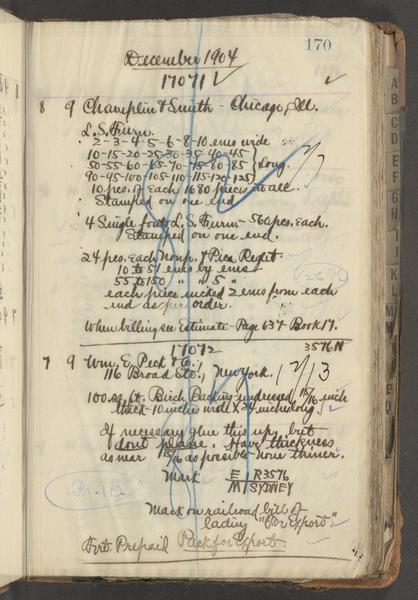 170
December 1904
17071
8 9 Champlin & Smith - Chicago, Ill.
L.S. Furn.
2-3-4-5-6-8-10 ems wide
10-15-20-25-30-35-40-45
50-55-60-65-70-75-80-85 } Long.
90-95-100-105-110-115-120-125
10 pcs. of each 1680 pieces in all
Stamped on one end
4 Single fonts L.S. Furn - 560 pcs. Each.
Stamped on one end.
24 pcs. Each Nonp. & Pica Reglet
10 to 51 ems by ems
55 to 150 " " 5 "
each piece nicked 2 ems from each
end as per order.
When billing see Estimate - Page 637 Book 17.
17072 3576 N
7 9 Wm. E. Peck & Co.,
116 Broad St., New York. 12/13
100 sq. ft. Birch Backing undressed 15/16 inch
thick - 10 inches wide X 24 inches long.
If necessary glue this up, but
dont plane. Have thickness
as near 15/16 as possible none thinner.
Mark E R3576
M SYDNEY
Mark on railroad bill of
lading "For Export"
Frt. Prepaid Pack for Export
A
B
C
D
E
F
G
H
J
K
L
M